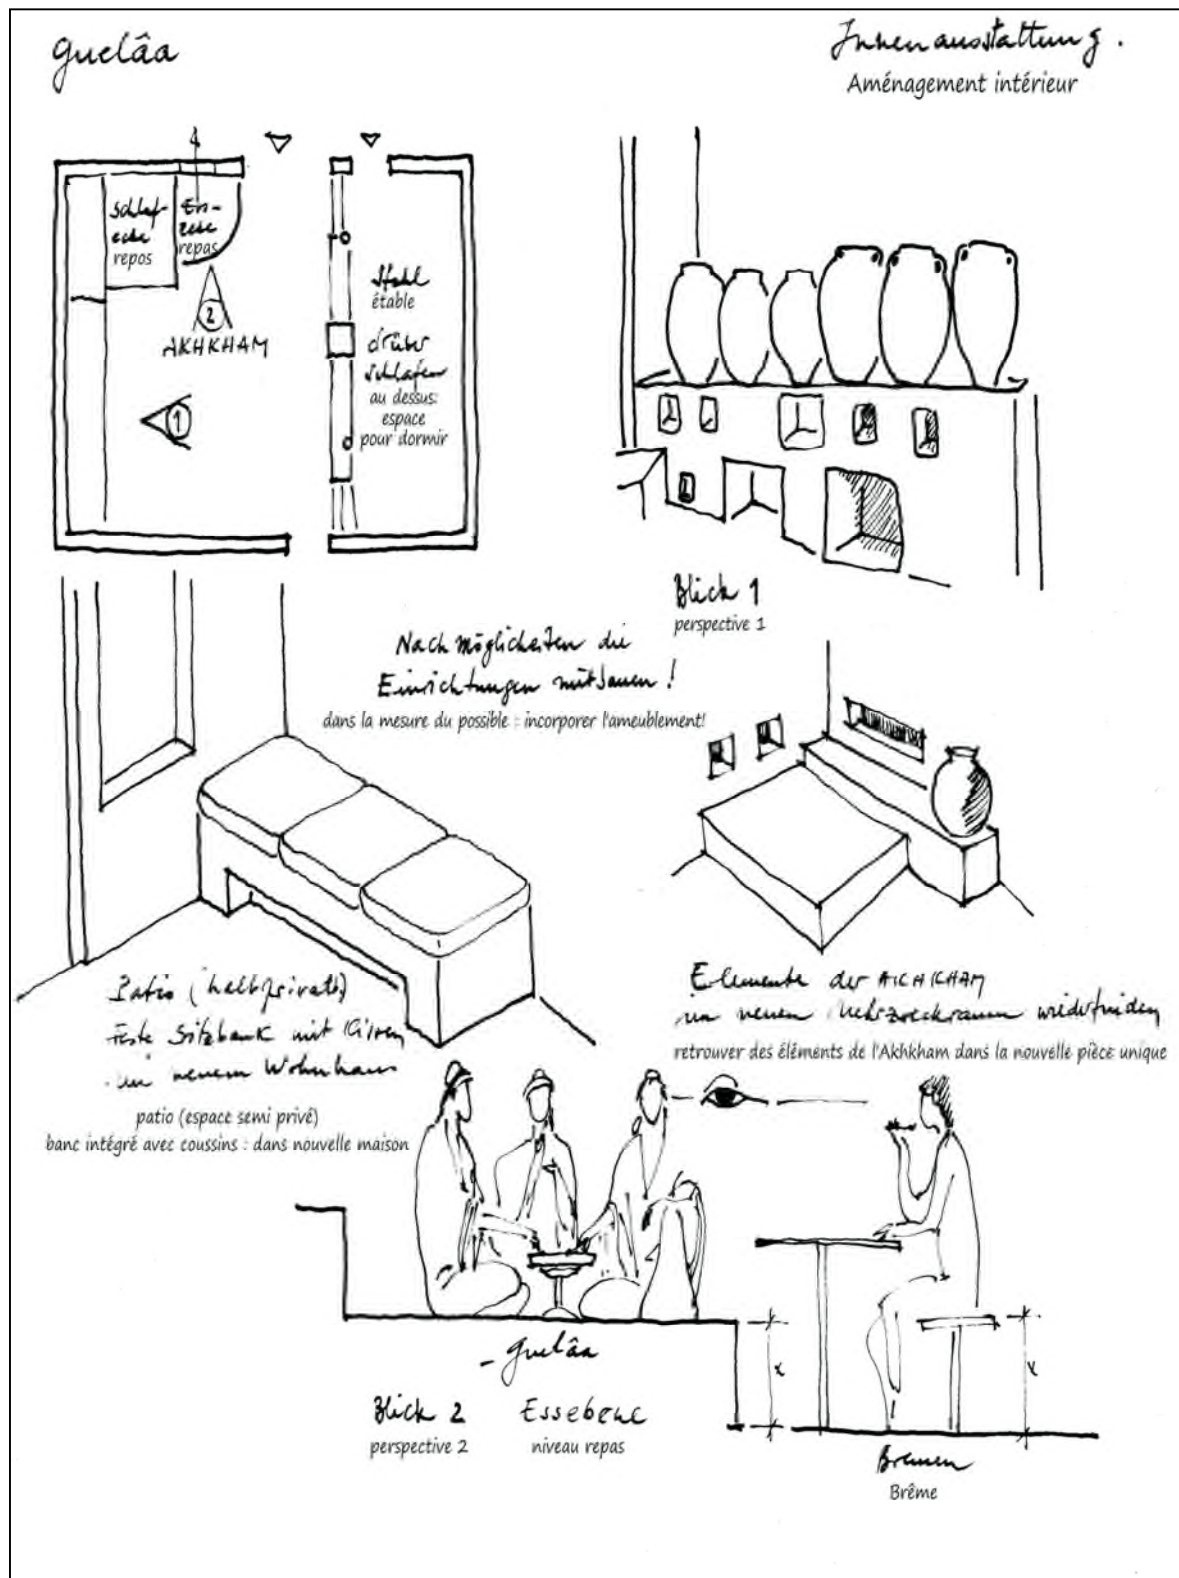 Guelâa
Innenausstattung.
Aménagement intérieur
Schlaf-
ecke
repos
Ess-
ecke
repas
Stahl
étable
drüber
schlafen
au dessus:
espace
pour dormir
2
AKHKHAM
1
Blick 1
perspective 1
Nach möglichkeiten die
Einrichtungen mitbauen!
dans la mesure du possible : incorporer l'ameublement!
Patio (halbprivate)
Feste Sitzbank mit Kissen
im neuem Wohnhaus
patio (espace semi privé)
banc intégré avec coussins : dans nouvelle maison
Elemente der AKHKHAM
im neuen Mehrzweckraum wiederfinden
retrouver des éléments de l'Akhkham dans la nouvelle pièce unique
- Guelâa
x
x
Blick 2
perspective 2
Essebene
niveau repas
Bremen
Brême